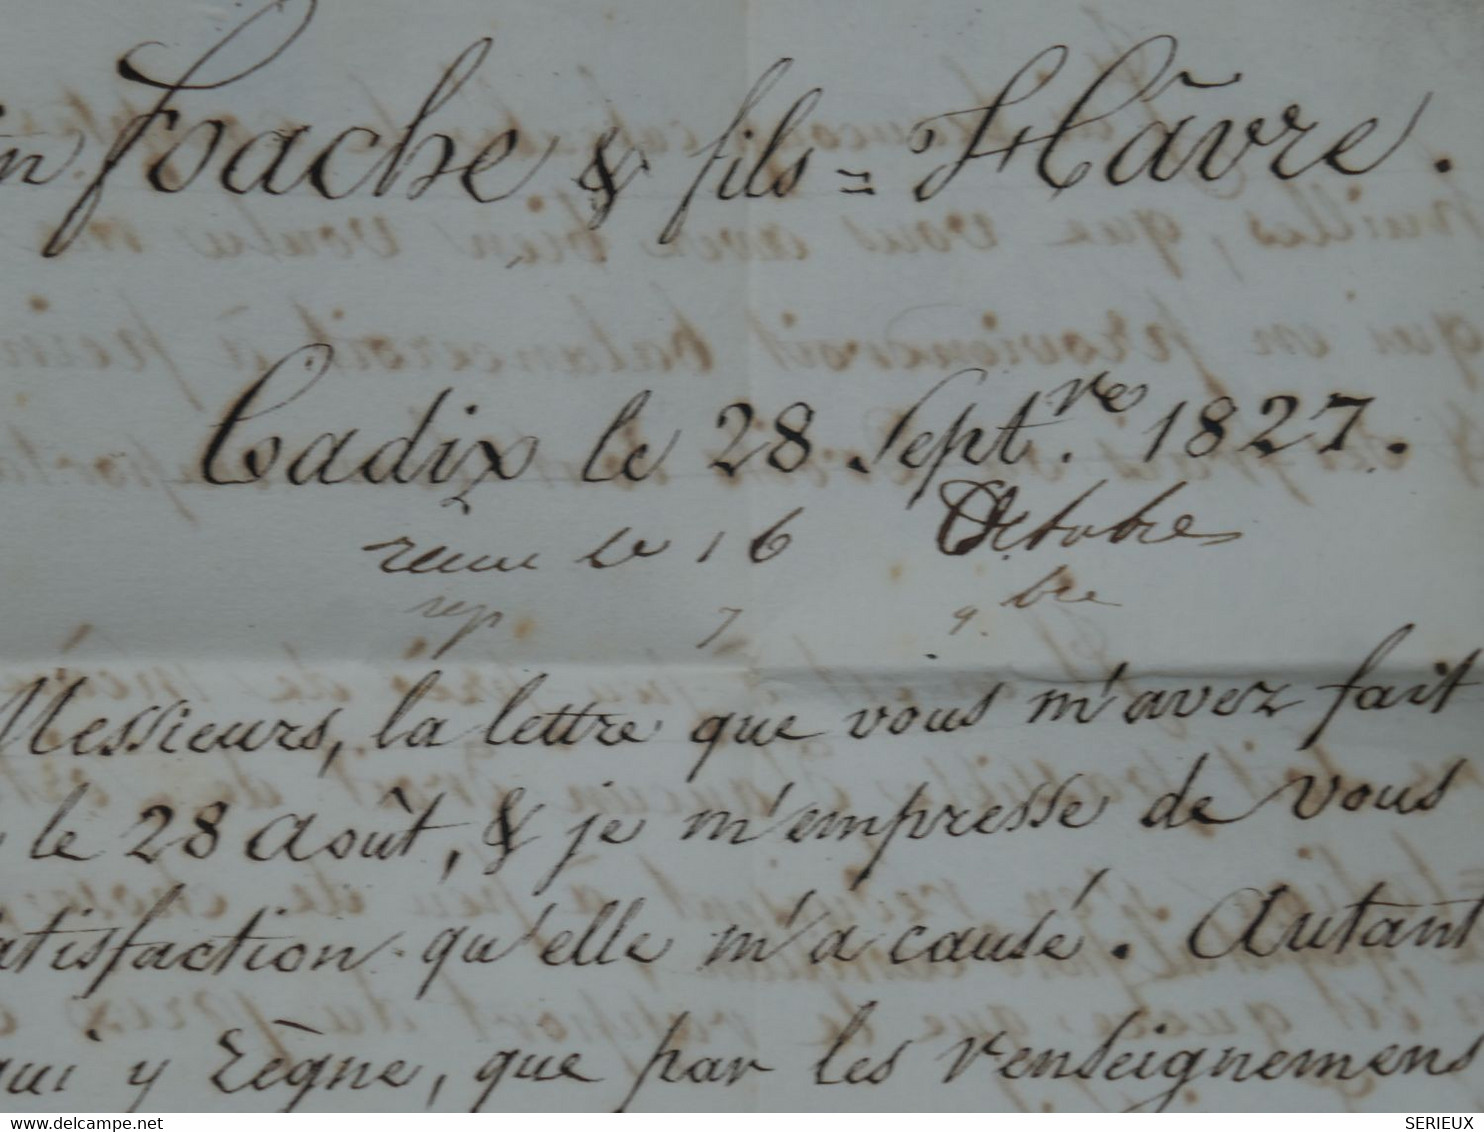 Foache & fils = Hâvre.
Cadix le 28 Sept.re 1827.
reçue le 16 Octobre
rep 7 9.bre
Messieurs, la lettre que vous m'avez fait
le 28 Août, & je m'empresse de vous
satisfaction qu'elle m'a causé. Autant
qui y règne, que par les renseignemens
delcampe.net
SERIEUX